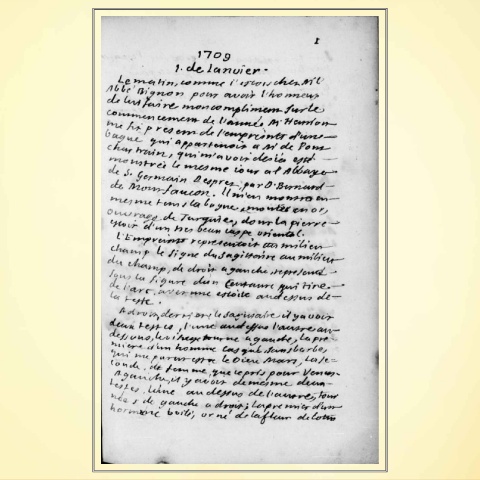 1
1709
1. de Ianvier.
Le matin, comme i'estois chez Mr l'
Abbé Bignon pour avoir l'honneur
de luy faire mon compliment sur le
commencement de l'année Mr Henrion
me fit present de l'empreinte d'une
bague qui appartenoit a Mr de Pont
chartrain, qui m'avoit desia esté
monstrée le mesme iour a l'Abbaye
de S. Germain Desprez par D. Bernard
de Monfaucon. Il m'en monstra en
mesme tems la bague, montée en or,
ouvrage de Turquie, dont la pierre
estoit d'un tres beau iaspe oriental.
L'Empreinte representoit au milieu
champ le signe du Sagittaire au milieu
du champ, de droit a gauche, representé
sous la figure d'un Centaure qui tire
de l'arc, avec une estoile au dessus de
la teste.
A droit, derriere le sagitaire il y avoit
deux testes, l'une au dessus l'autre au
dessous, tournée a gauche, la pre
miere d'un homme casqué sans barbe,
qui me parut estre le Dieu Mars, la se
conde, de femme, que ie pris pour Venus.
A gauche, il y avoit de mesme deux
testes, l'une au dessus de l'autre, tour
nées de gauche a droit; la premier d'un
homme voilé, orné de la fleur de lotus